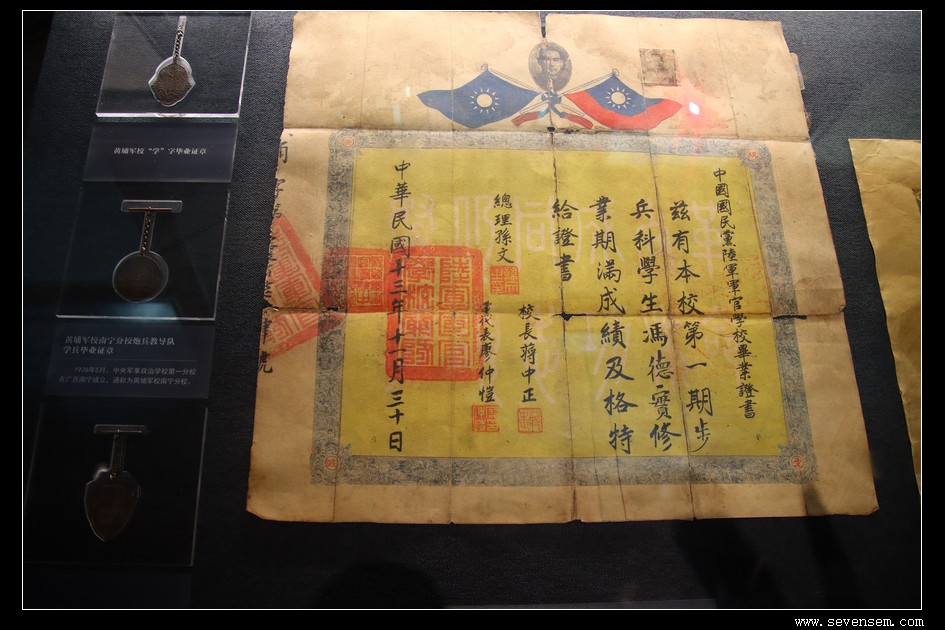 黄埔军校“学”字毕业证章
黄埔军校南宁分校炮兵教导队
学兵毕业证章
1926年5月，中央军事政治学校第一分校
在广西南宁成立，通称为黄埔军校南宁分校。
中國國民黨陸軍軍官學校畢業證書
茲有本校第一期步
兵科學生馮德實修
業期滿成績及格特
給證書
總理孫文
校長蔣中正
黨代表廖仲愷
中華民國十三年十一月三十日
www.sevensem.com